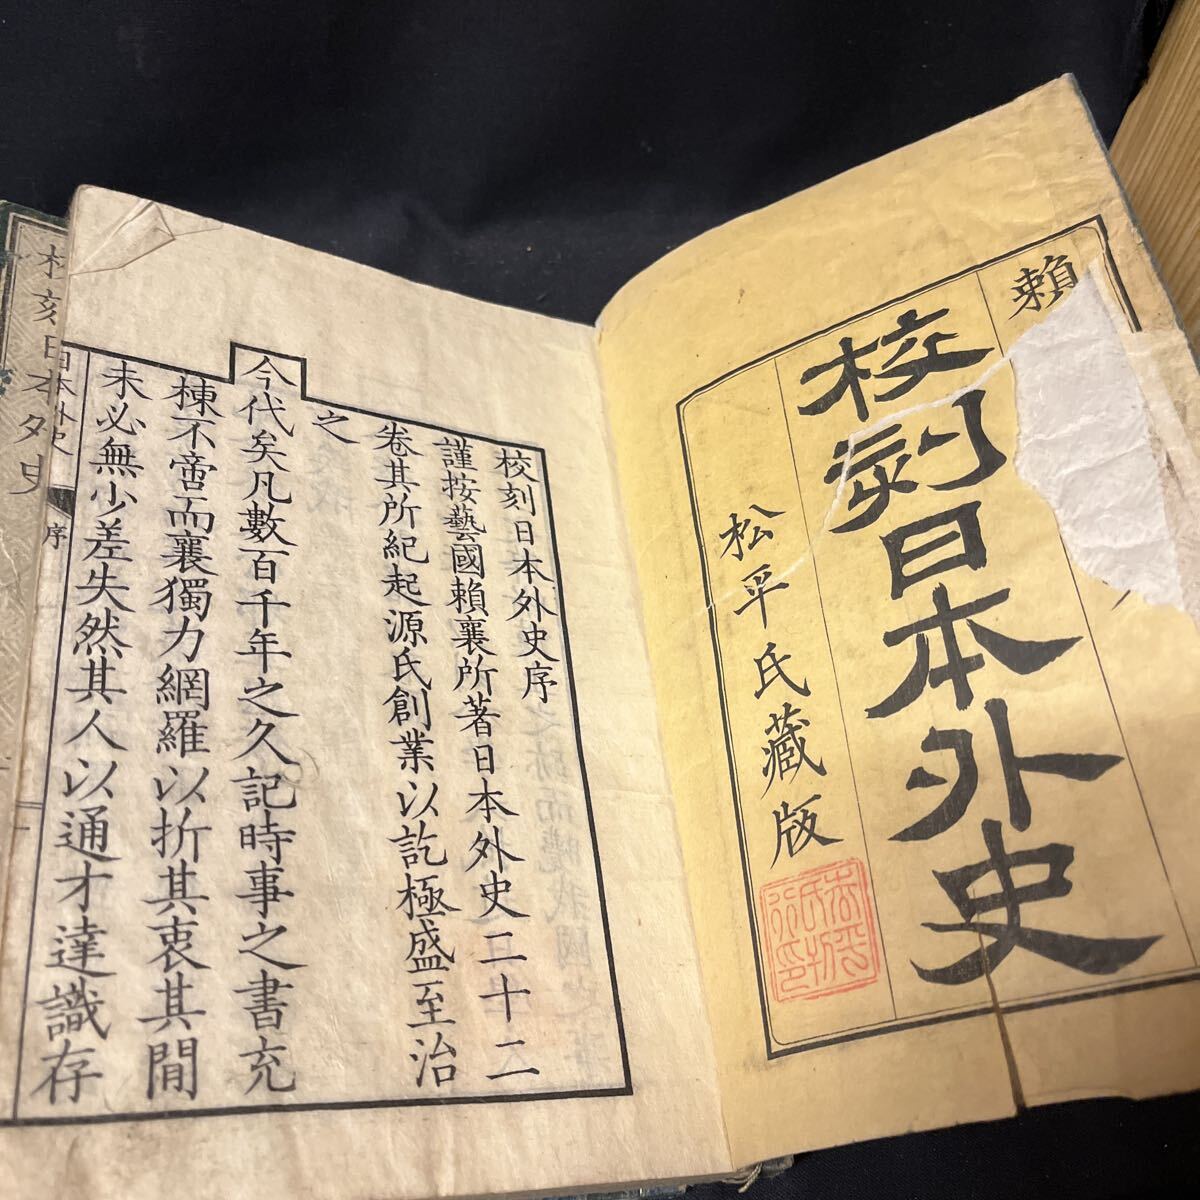 賴
校刻日本外史
松平氏藏版
校刻日本外史序
謹按藝國賴襄所著日本外史二十二
卷其所紀起源氏創業以訖極盛至治
之
今代矣凡數百千年之久記時事之書充
棟不啻而襄獨力網羅以折其衷其間
未必無少差失然其人以通才達識存
日本外史
序
校刻日本外史